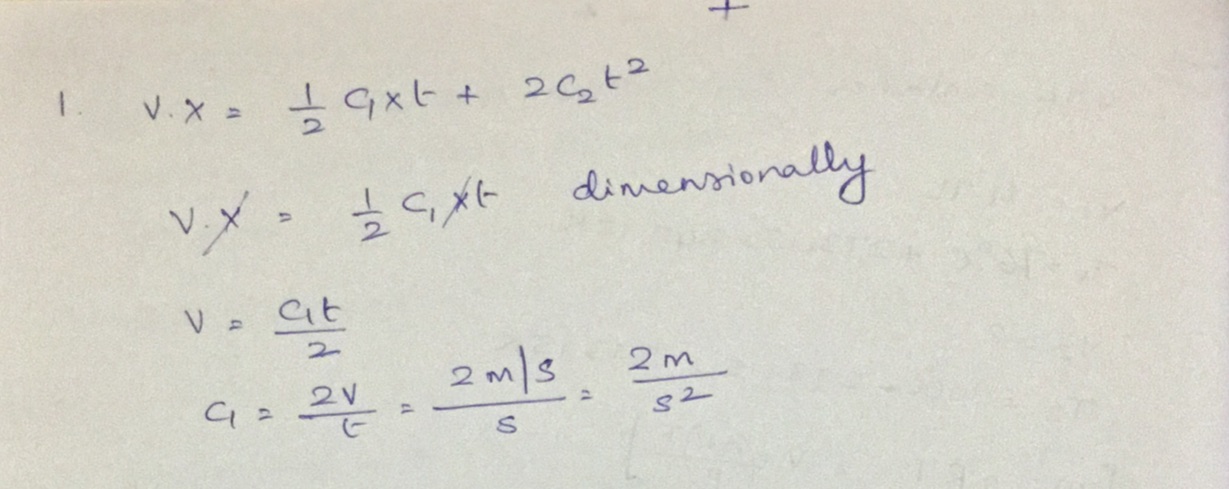 +
1. V.x = 1/2 C₁xt + 2C₂t²
V.x = 1/2 C₁xt dimensionally
V = C₁t/2
C₁ = 2V/t = 2m/s/s = 2m/s²